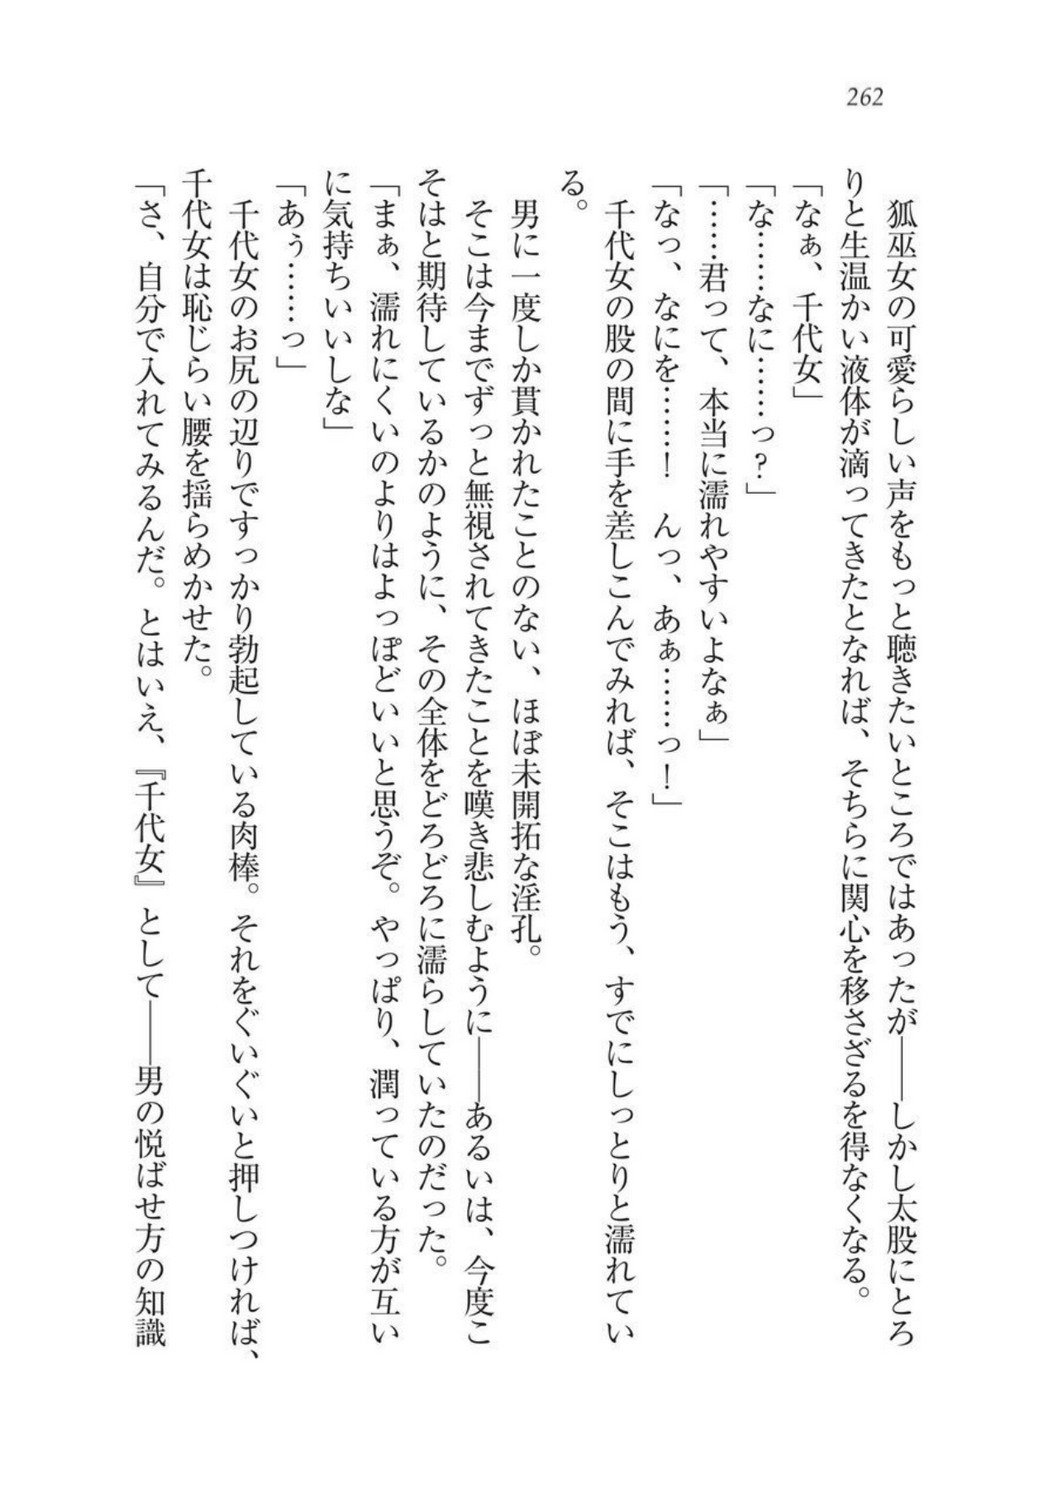 262
狐巫女の可愛らしい声をもっと聴きたいところではあったが――しかし太股にとろ
りと生温かい液体が滴ってきたとなれば、そちらに関心を移さざるを得なくなる。
「なぁ、千代女」
「な……なに……っ?」
「……君って、本当に濡れやすいよなぁ」
「なっ、なにを……！　んっ、あぁ……っ！」
千代女の股の間に手を差しこんでみれば、そこはもう、すでにしっとりと濡れてい
る。
男に一度しか貫かれたことのない、ほぼ未開拓な淫孔。
そこは今までずっと無視されてきたことを嘆き悲しむように――あるいは、今度こ
そはと期待しているかのように、その全体をどろどろに濡らしていたのだった。
「まぁ、濡れにくいのよりはよっぽどいいと思うぞ。やっぱり、潤っている方が互い
に気持ちいいしな」
「あぅ……っ」
千代女のお尻の辺りですっかり勃起している肉棒。それをぐいぐいと押しつければ、
千代女は恥じらい腰を揺らめかせた。
「さ、自分で入れてみるんだ。とはいえ、『千代女』として――男の悦ばせ方の知識